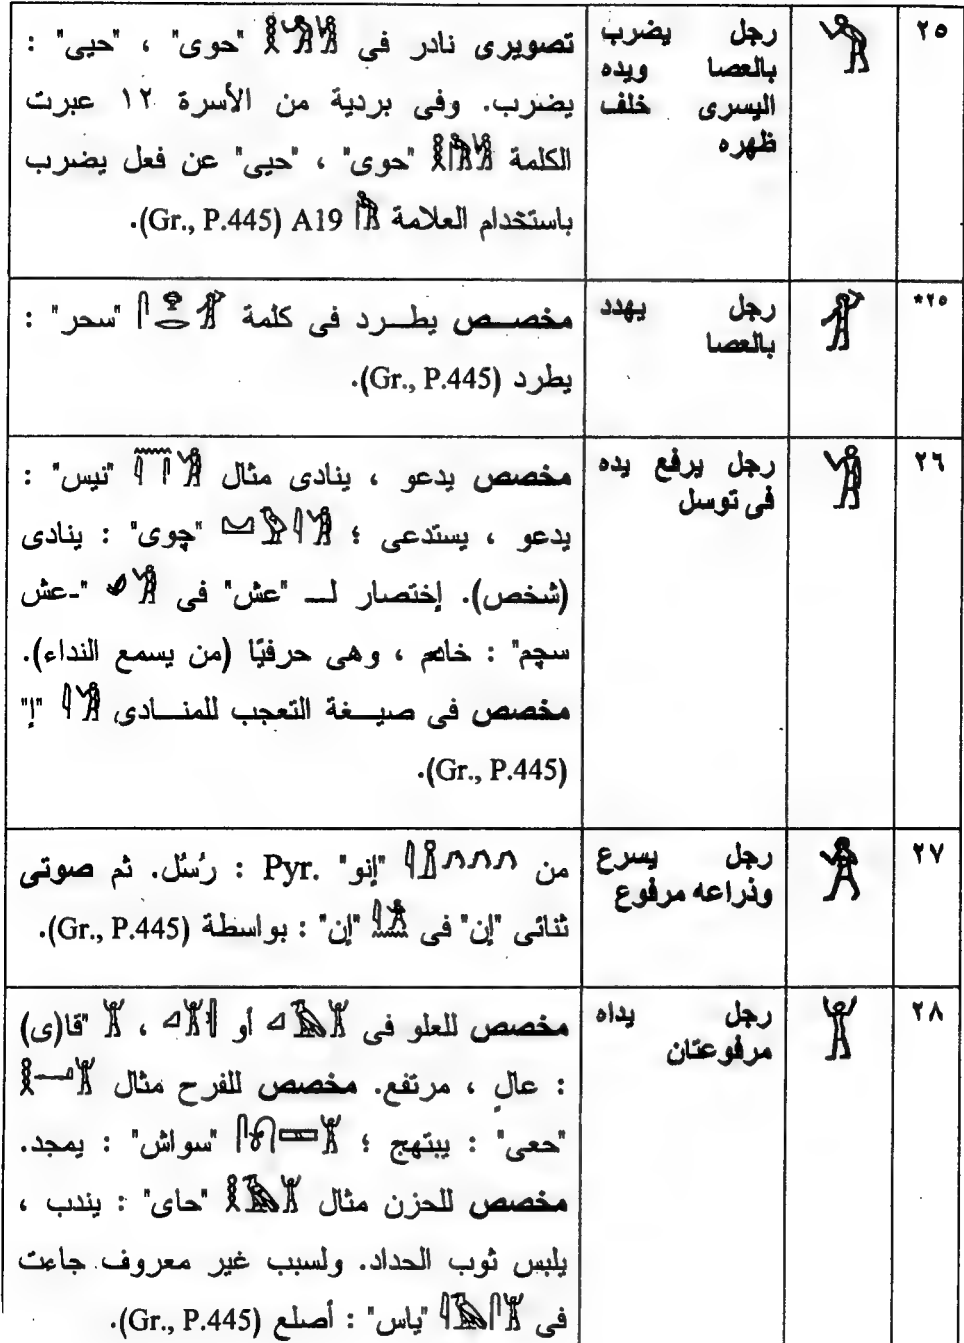 ٢٥
رجل يضرب
بالعصا ويده
اليسرى خلف
ظهره
تصويرى نادر فى "حوى" ، "حيى" :
يضرب. وفى بردية من الأسرة ١٢ عبرت
الكلمة "حوى" ، "حيى" عن فعل يضرب
باستخدام العلامة A19 (Gr., P.445).
*٢٥
رجل يهدد
بالعصا
مخصص يطرد فى كلمة "سحر" :
يطرد (Gr., P.445).
٢٦
رجل يرفع يده
فى توسل
مخصص يدعو ، ينادى مثال "نيس" :
يدعو ، يستدعى ؛ "چوى" : ينادى
(شخص). إختصار لـ "عش" فى "-عش
سچم" : خادم ، وهى حرفيًا (من يسمع النداء).
مخصص فى صيغة التعجب للمنادى "إ"
(Gr., P.445).
٢٧
رجل يسرع
وذراعه مرفوع
من "إنو" Pyr. : رُسُل. ثم صوتى
ثنائى "إن" فى "إن" : بواسطة (Gr., P.445).
٢٨
رجل يداه
مرفوعتان
مخصص للعلو فى أو ، "قا(ى)
: عالٍ ، مرتفع. مخصص للفرح مثال
"حعى" : يبتهج ؛ "سواش" : يمجد.
مخصص للحزن مثال "حاى" : يندب ،
يلبس ثوب الحداد. ولسبب غير معروف جاءت
فى "ياس" : أصلع (Gr., P.445).